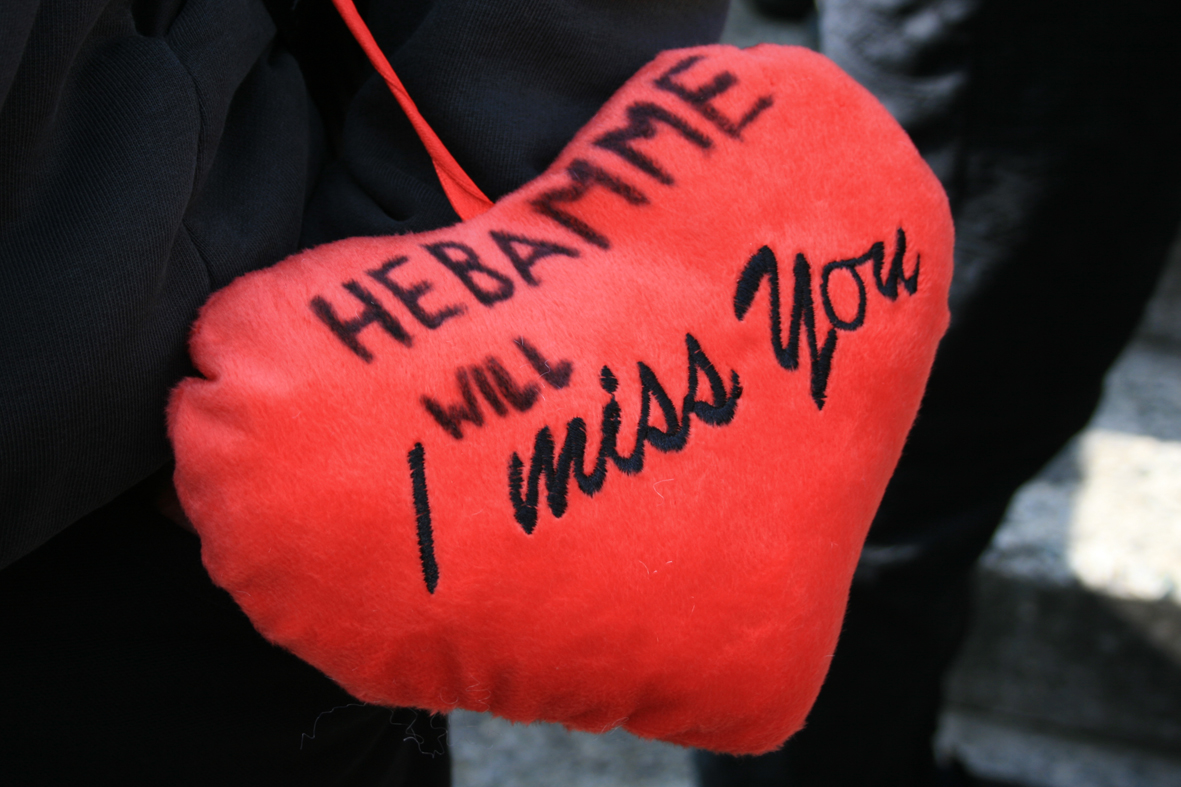 HEBAMME
WILL
I miss You